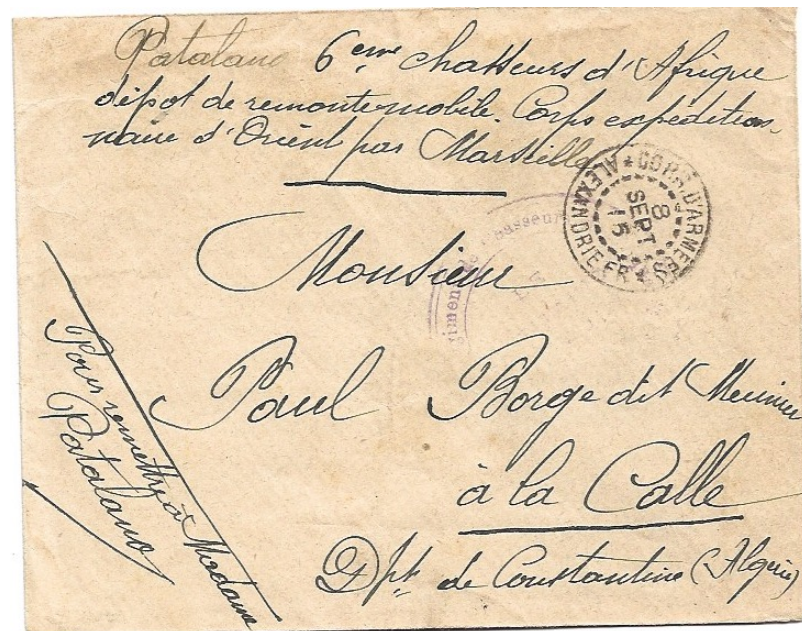 Patalano 6ème chasseurs d'Afrique
dépot de remonte mobile. Corps expédition-
naire d'Orient par Marseille
CORPS. D'ARMEES * ALEXANDRIE. FR *
8
SEPT
15
asseur
giment de
Monsieur
Paul Borge dit Meunier
à la Calle
Dpt de Constantine (Algérie)
Pour remettre à Madame
Patalano